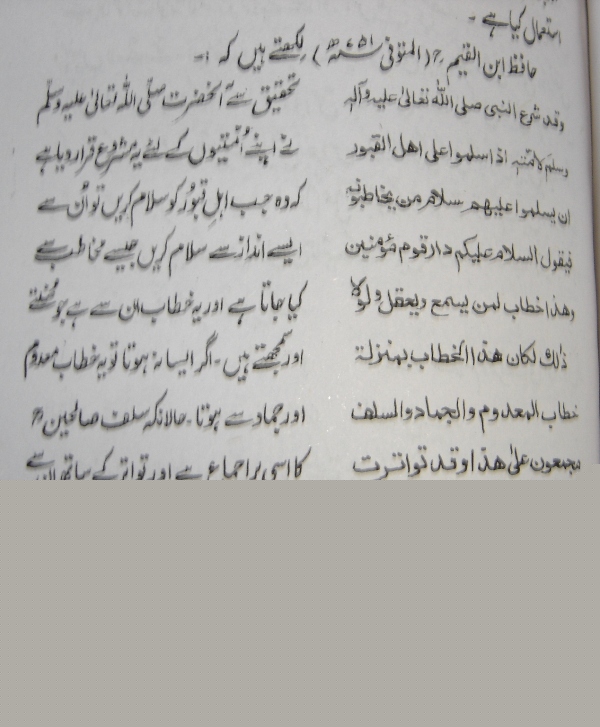 استعمال کیا ہے۔
حافظ ابن القیمؒ (المتوفی ۷۵۱ھ) لکھتے ہیں کہ :۔
وقد شرع النبی صلی الله تعالیٰ علیہ وآلہ
وسلم لامتہ اذا سلموا علی اهل القبور
ان یسلموا علیهم سلام من یخاطبونہ
فیقول السلام علیکم دار قوم مؤمنین
وهذا خطاب لمن یسمع ویعقل ولولا
ذٰلک لکان هذا الخطاب بمنزلة
خطاب المعدوم والجماد والسلف
مجمعون علیٰ هذا وقد تواترت
تحقیق سے آنحضرت صلّی اللہ تعالیٰ علیہ وسلّم
نے اپنے اُمتیوں کے لئے یہ مشروع قرار دیا ہے
کہ وہ جب اہلِ قبور کو سلام کریں تو اُن سے
ایسے انداز سے سلام کریں جیسے مخاطب سے
کیا جاتا ہے اور یہ خطاب ان سے ہے جو سنتے
اور سمجھتے ہیں۔ اگر ایسا نہ ہوتا تو یہ خطاب معدوم
اور جماد سے ہوتا۔ حالانکہ سلف صالحینؒ
کا اسی پر اجماع ہے اور تواتر کے ساتھ ان سے